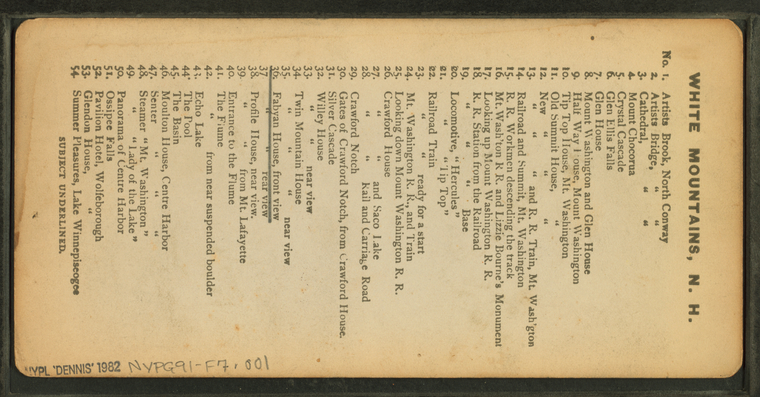 WHITE MOUNTAINS, N. H.
No. 1. Artists Brook, North Conway
2. Artists Bridge, " "
3. Cathedral " "
4. Mount Chocorua
5. Crystal Cascade
6. Glen Ellis Falls
7. Glen House
8. Mount Washington and Glen House
9. Half Way House, Mount Washington
10. Tip Top House, Mt. Washington
11. Old Summit House, "
12. New " " "
13. " " " and R. R. Train, Mt. Wash'gton
14. Railroad and Summit, Mt. Washington
15. R. R. Workmen descending the track
16. Mt. Wash'ton R. R. and Lizzie Bourne's Monument
17. Looking up Mount Washington R. R.
18. R. R. Station from the Railroad
19. " " " Base
20. Locomotive, "Hercules"
21. " "Tip Top"
22. Railroad Train
23. " " ready for a start
24. Mt. Washington R. R., and Train
25. Looking down Mount Washington R. R.
26. Crawford House
27. " " and Saco Lake
28. " " Rail and Carriage Road
29. Crawford Notch
30. Gates of Crawford Notch, from Crawford House.
31. Silver Cascade
32. Willey House
33. " " near view
34. Twin Mountain House
35. " " " near view
36. Fabyan House, front view
37 " " rear view
38. Profile House, near view.
39. " " from Mt. Lafayette
40. Entrance to the Flume
41. The Flume
42. " " from near suspended boulder
43. Echo Lake
44. The Pool
45. The Basin
46. Moulton House, Centre Harbor
47. Senter " " "
48. Steamer "Mt. Washington"
49. " "Lady of the Lake"
50. Panorama of Centre Harbor
51. Ossipee Falls
52. Pavilion Hotel, Wolfeborough
53. Glendon House, "
54. Summer Pleasures, Lake Winnepiseogee
SUBJECT UNDERLINED.
NYPL 'DENNIS' 1982 NYPG91-F7.001